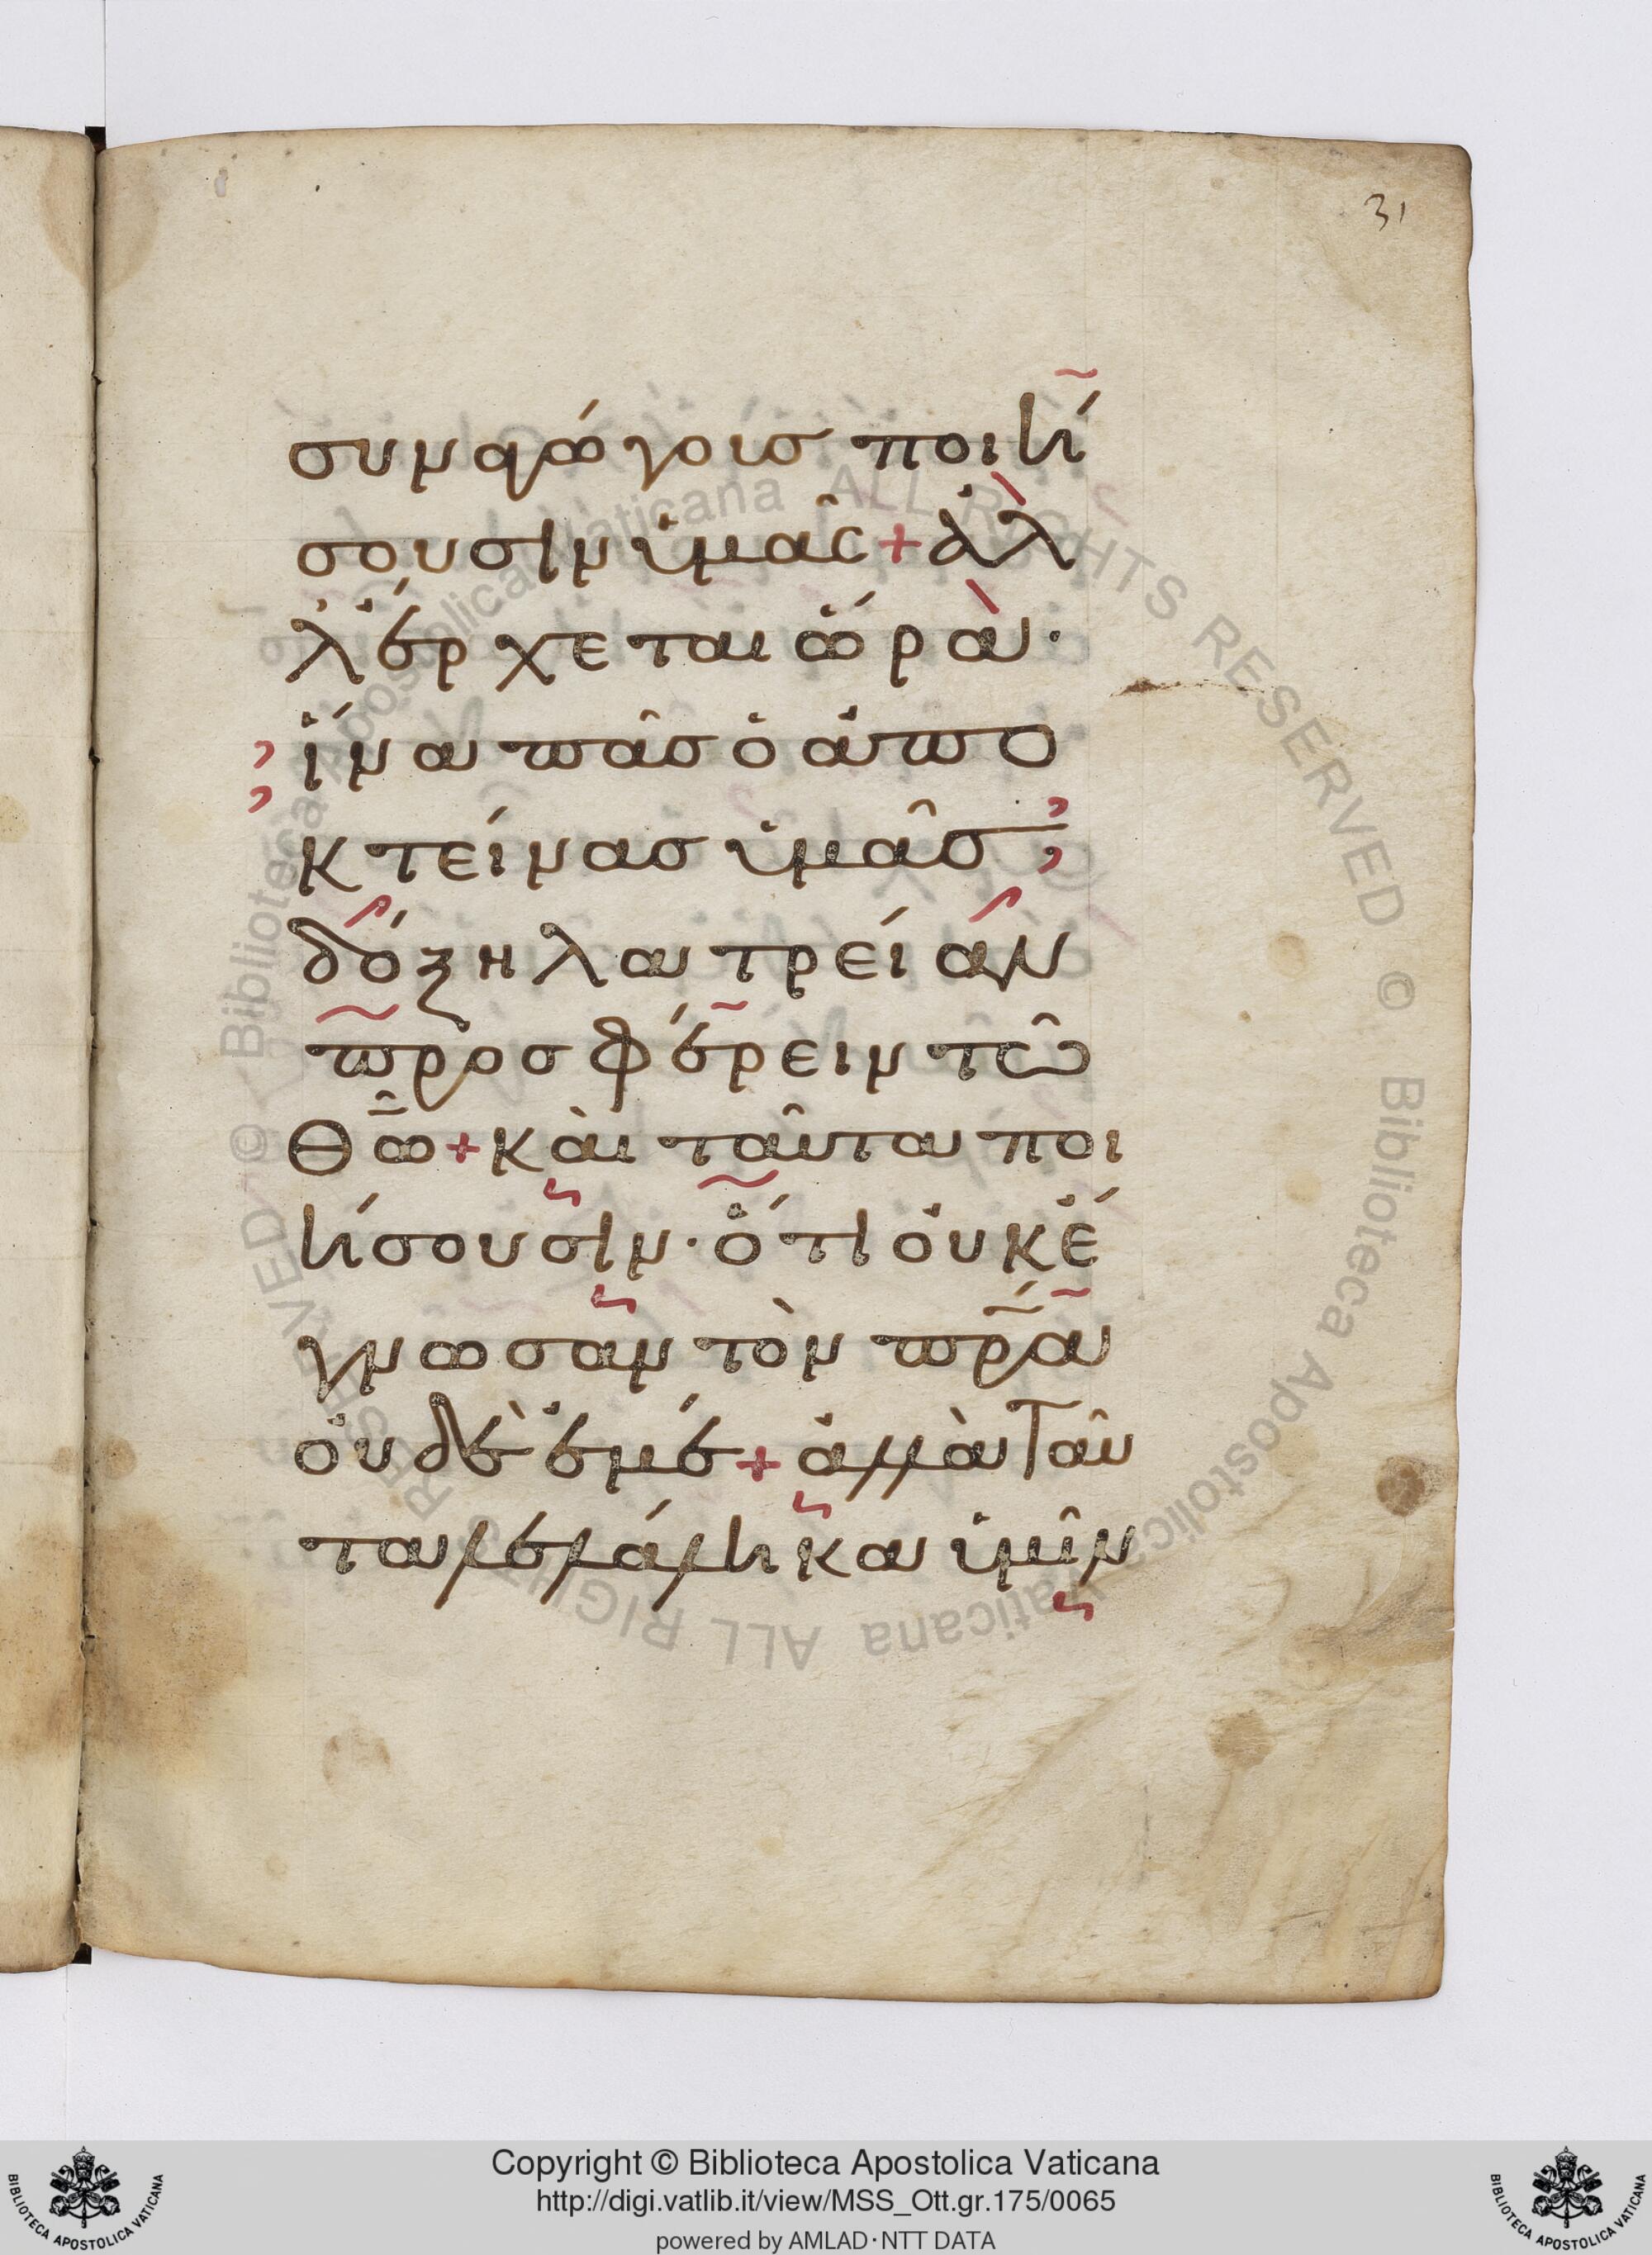 31
συμαγώγοισ ποιή
σουσιν ὑμᾶς + ἀλ
λ' ἔρχεται ὥρα ·
ἵνα πᾶσ ὁ ἀπο
κτείνασ ὑμᾶσ
δόξη λατρείαν
προσφέρειν τῶ
θ̅ῶ̅ + καὶ ταῦτα ποι
ήσουσιν · ὅτι οὐκ ἔ
γνωσαν τὸν π̅ρ̅α̅
οὐδὲ ἐμέ + ἀλλὰ ταῦ
τα λελάληκα ὑμῖν
Copyright © Biblioteca Apostolica Vaticana
http://digi.vatlib.it/view/MSS_Ott.gr.175/0065
powered by AMLAD·NTT DATA
BIBLIOTECA APOSTOLICA VATICANA
BIBLIOTECA APOSTOLICA VATICANA
© Biblioteca Apostolica Vaticana ALL RIGHTS RESERVED
© Biblioteca Apostolica Vaticana ALL RIGHTS RESERVED